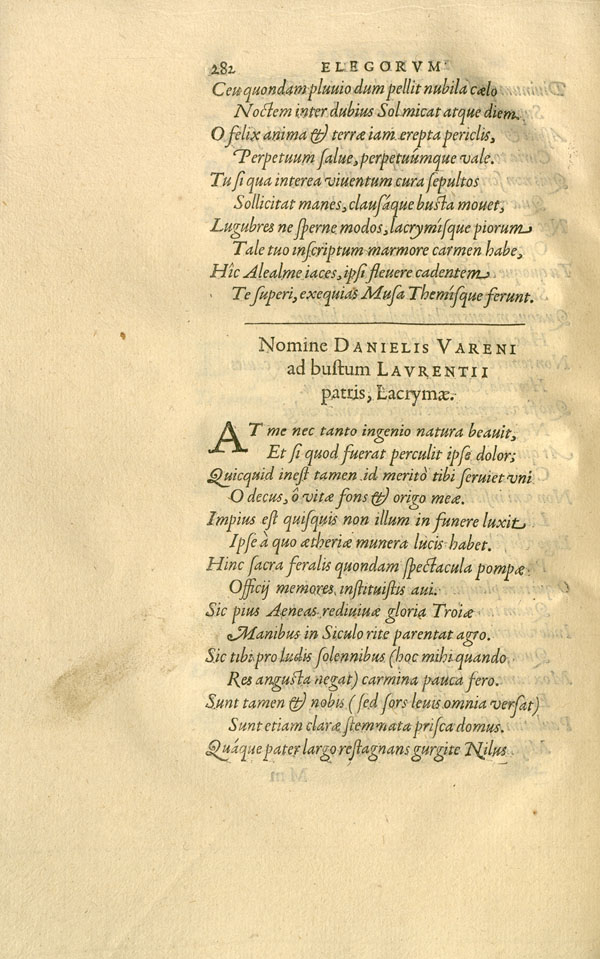 282 ELEGORVM
Ceu quondam pluuio dum pellit nubila cælo
Noctem inter dubius Sol micat atque diem.
O felix anima & terræ iam erepta periclis,
Perpetuum salue, perpetuúmque vale.
Tu si qua interea viuentum cura sepultos
Sollicitat manes, clausáque busta mouet,
Lugubres ne sperne modos, lacrymísque piorum
Tale tuo inscriptum marmore carmen habe,
Hîc Alealme iaces, ipsi fleuere cadentem
Te superi, exequias Musa Themísque ferunt.
Nomine DANIELIS VARENI
ad bustum LAVRENTII
patris, Lacrymæ.
AT me nec tanto ingenio natura beauit,
Et si quod fuerat perculit ipse dolor;
Quicquid inest tamen id meritò tibi seruiet vni
O decus, ô vitæ fons & origo meæ.
Impius est quisquis non illum in funere luxit
Ipse à quo ætheriæ munera lucis habet.
Hinc sacra feralis quondam spectacula pompæ
Officij memores instituistis aui.
Sic pius Aeneas rediuiuæ gloria Troiæ
Manibus in Siculo rite parentat agro.
Sic tibi pro ludis solennibus (hoc mihi quando
Res angusta negat) carmina pauca fero.
Sunt tamen & nobis (sed sors leuis omnia versat)
Sunt etiam claræ stemmata prisca domus.
Quáque pater largo restagnans gurgite Nilus